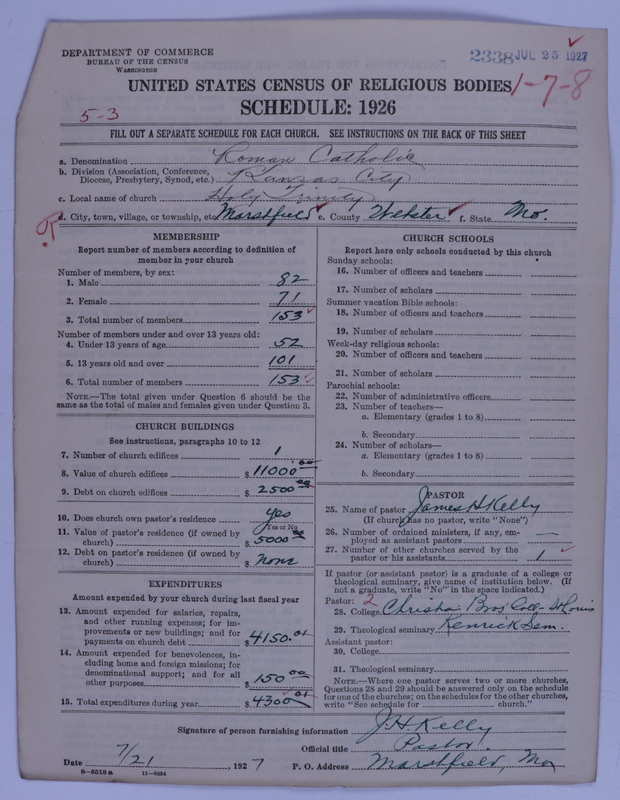 DEPARTMENT OF COMMERCE
BUREAU OF THE CENSUS
WASHINGTON
2338 JUL 25 1927
UNITED STATES CENSUS OF RELIGIOUS BODIES
1-7-8
SCHEDULE: 1926
5-3
FILL OUT A SEPARATE SCHEDULE FOR EACH CHURCH. SEE INSTRUCTIONS ON THE BACK OF THIS SHEET
a. Denomination Roman Catholic
b. Division (Association, Conference, Diocese, Presbytery, Synod, etc.) Kansas City
c. Local name of church Holy Trinity
d. City, town, village, or township, etc. Marshfield e. County Webster f. State Mo.
R
MEMBERSHIP
Report number of members according to definition of
member in your church
Number of members, by sex:
1. Male 82
2. Female 71
3. Total number of members 153
Number of members under and over 13 years old:
4. Under 13 years of age 52
5. 13 years old and over 101
6. Total number of members 153
NOTE.—The total given under Question 6 should be the
same as the total of males and females given under Question 3.
CHURCH BUILDINGS
See instructions, paragraphs 10 to 12
7. Number of church edifices 1
8. Value of church edifices $ 11000.00
9. Debt on church edifices $ 2500 00
10. Does church own pastor's residence yes
Yes or No
11. Value of pastor's residence (if owned by
church) $ 5000 00
12. Debt on pastor's residence (if owned by
church) $ none
EXPENDITURES
Amount expended by your church during last fiscal year
13. Amount expended for salaries, repairs,
and other running expenses; for im-
provements or new buildings; and for
payments on church debt $ 4150.01
14. Amount expended for benevolences, in-
cluding home and foreign missions; for
denominational support; and for all
other purposes $ 150 00
15. Total expenditures during year $ 4300 01
CHURCH SCHOOLS
Report here only schools conducted by this church
Sunday schools:
16. Number of officers and teachers
17. Number of scholars
Summer vacation Bible schools:
18. Number of officers and teachers
19. Number of scholars
Week-day religious schools:
20. Number of officers and teachers
21. Number of scholars
Parochial schools:
22. Number of administrative officers
23. Number of teachers—
a. Elementary (grades 1 to 8)
b. Secondary
24. Number of scholars—
a. Elementary (grades 1 to 8)
b. Secondary
PASTOR
25. Name of pastor James H Kelly
(If church has no pastor, write "None")
26. Number of ordained ministers, if any, em-
ployed as assistant pastors —
27. Number of other churches served by the
pastor or his assistants 1
If pastor (or assistant pastor) is a graduate of a college or
theological seminary, give name of institution below. (If
not a graduate, write "No" in the space indicated.)
Pastor: 2
28. College Christian Bros Coll. St Louis
29. Theological seminary Kenrick Sem.
Assistant pastor:
30. College
31. Theological seminary
NOTE.—Where one pastor serves two or more churches,
Questions 28 and 29 should be answered only on the schedule
for one of the churches; on the schedules for the other churches,
write "See schedule for church."
Signature of person furnishing information J.H. Kelly
Official title Pastor.
Date 7/21, 1927 P. O. Address Marshfield, Mo
8-5518a 11-9284